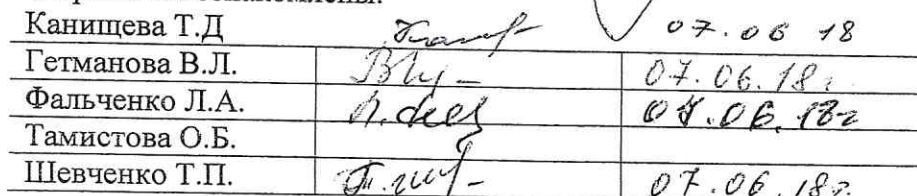 ознакомлены.
Канищева Т.Д 07.06 18
Гетманова В.Л. 07.06.18г
Фальченко Л.А. 07.06.18г
Тамистова О.Б.
Шевченко Т.П. 07.06.18г.